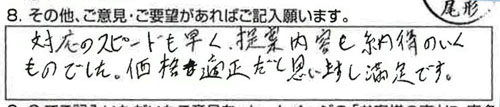 尾形
8. その他、ご意見・ご要望があればご記入願います。
対応のスピードも早く、提案内容も納得のいく
ものでした。価格も適正だと思いますし満足です。